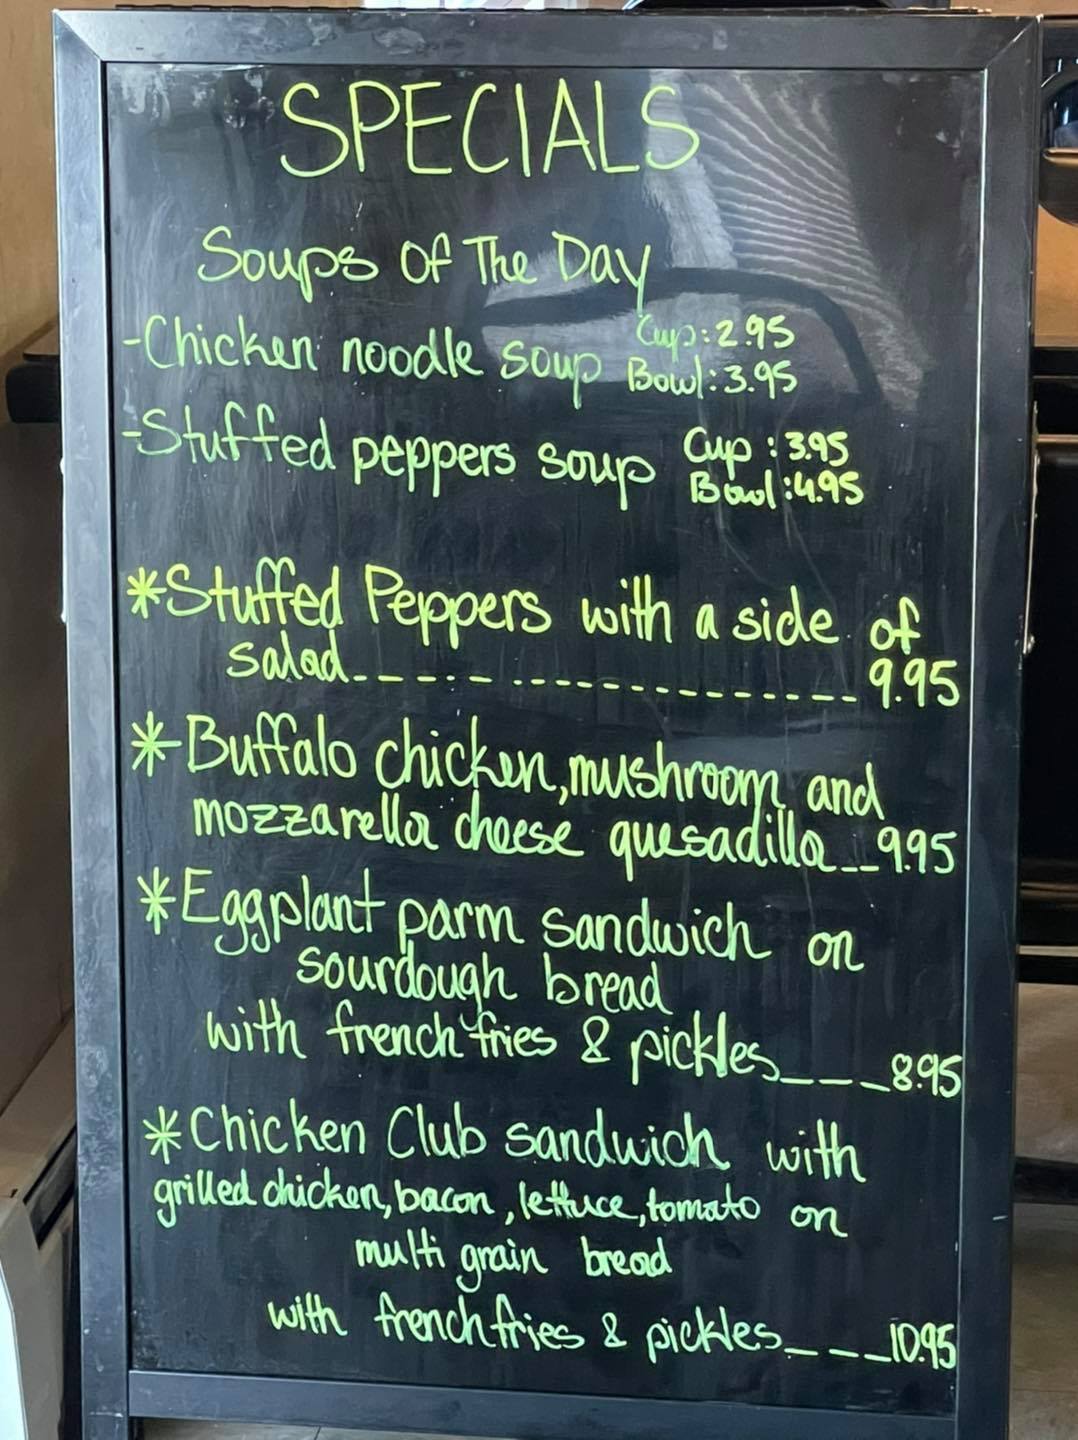 SPECIALS
Soups Of The Day
-Chicken noodle soup Cup: 2.95
Bowl: 3.95
-Stuffed peppers soup Cup : 3.95
Bowl: 4.95
*Stuffed Peppers with a side of
salad------------------- 9.95
*Buffalo chicken, mushroom and
mozzarella cheese quesadilla__9.95
*Eggplant parm sandwich on
sourdough bread
with french fries & pickles____8.95
*Chicken Club sandwich with
grilled chicken, bacon, lettuce, tomato on
multi grain bread
with french fries & pickles____10.95